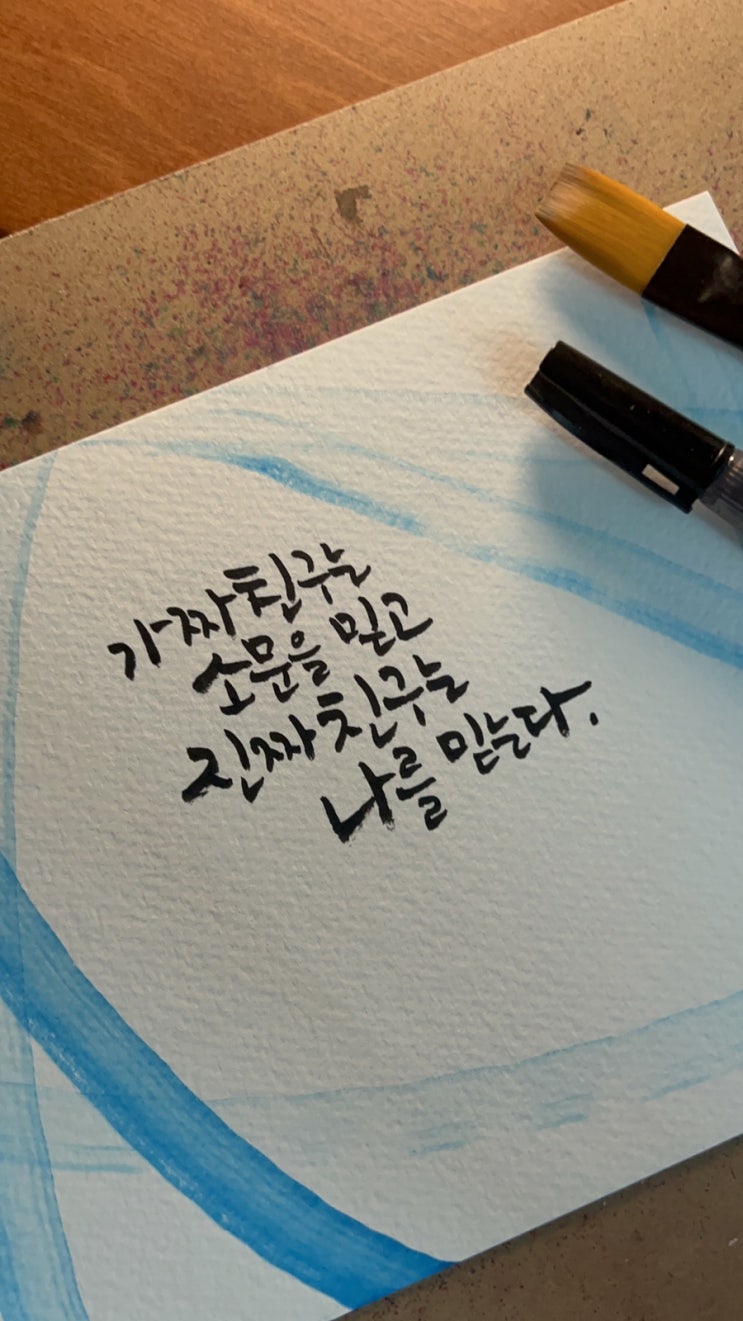 가짜 친구는
소문을 믿고
진짜 친구는
나를 믿는다.